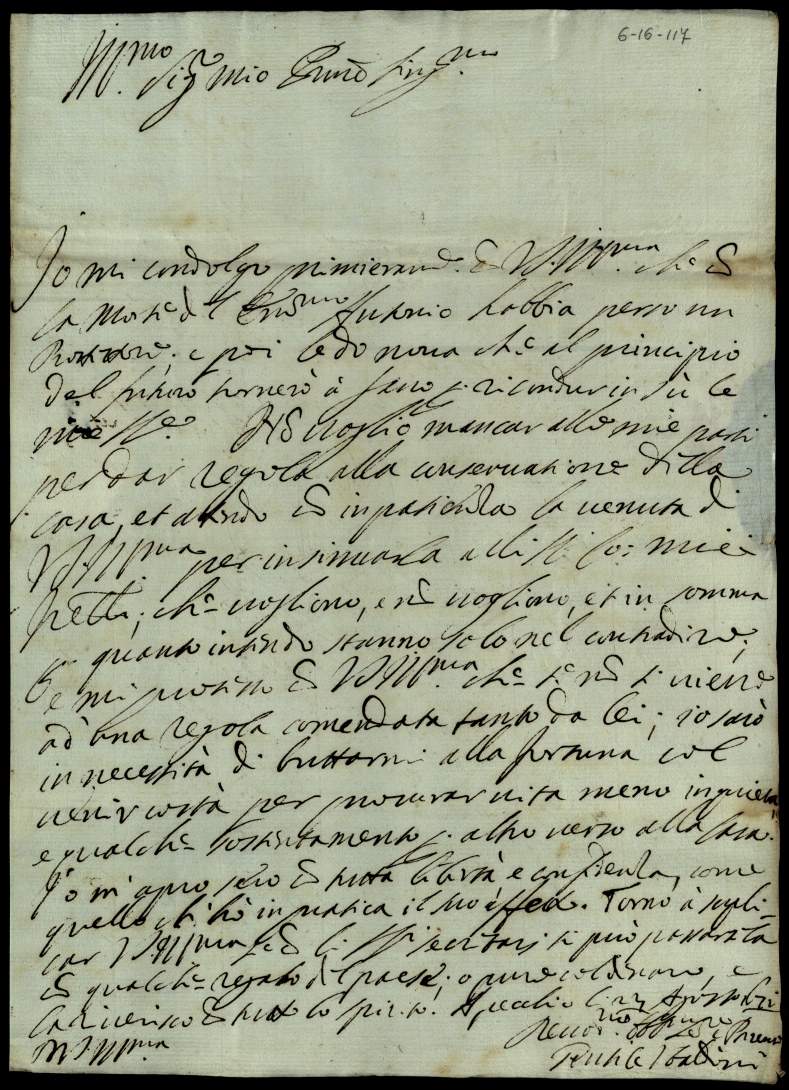 6-16-117
Ill.mo Sig.r mio Prone sing.mo
Io mi condolgo primieram.te cõ V.S. Ill.ma che cõ
la morte del Antonio habbia perso un
e poi le do nova che al principio
del futuro tornerò à Fano p. ricondur in sù le
Nõ voglio mancar alle mie parti
per dar regola alla conservatione della
casa, et attendo cõ inpatienza la venuta di
V.S. Ill.ma per insinuarla alli SS.ri miei
che vogliono, e nõ vogliono, et in somma
p. quanto intendo stanno solo nel contradire,
e mi protesto cõ V.S. Ill.ma che se nõ si viene
ad una regola comendata tanto da lei; io sarò
in necessità di buttarmi alla fortuna col
venir costà per procurar vita meno inquieta,
e qualche sostentamento p. altro verso alla Casa.
Io m'apro seco cõ tutta libertà e confidenza, come
quello ch'hò in pratica il suo affetto. Torno à supli-
car V.S. Ill.ma se cõ li SS.ri si può
cõ qualche regalo del paese, o pure col denaro, e
la riverisco cõ tutto lo spirito. Apecchio li 27 Agosto
V.S. Ill.ma